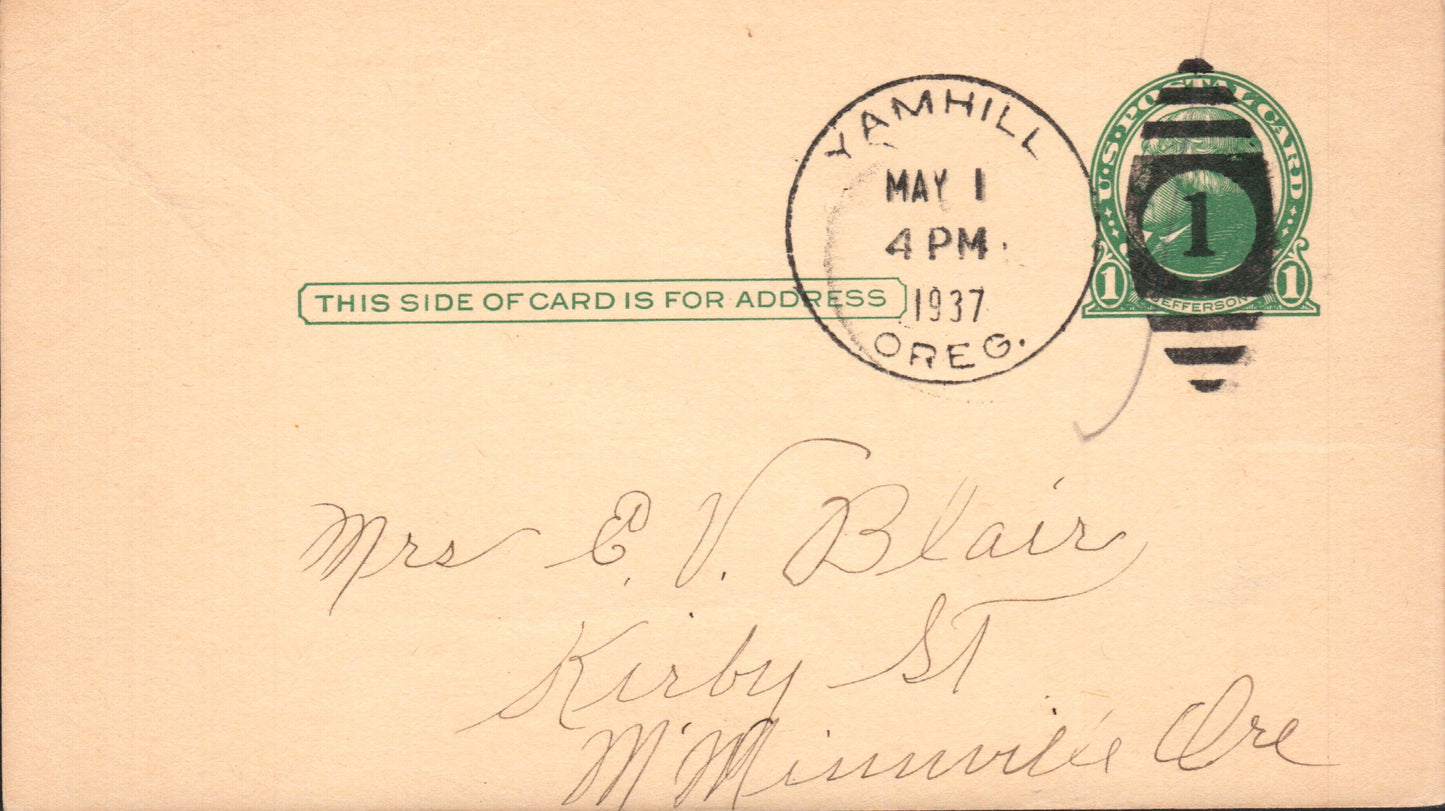 YAMHILL
MAY 1
4 PM
1937
OREG.
U.S. POSTAL CARD
1
1 JEFFERSON 1
THIS SIDE OF CARD IS FOR ADDRESS
Mrs E. V. Blair
Kirby St
McMinnville Ore